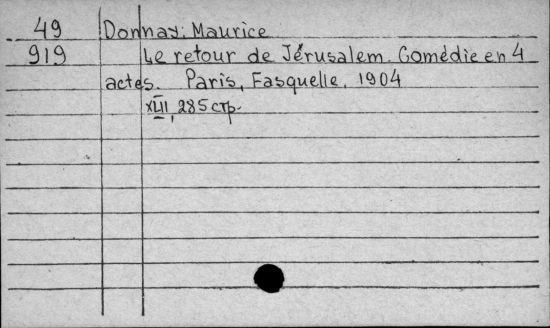 49 Donnay. Maurice
919 Le retour de Jérusalem. Comédie en 4
actes. Paris, Fasquelle, 1904
285 стр.